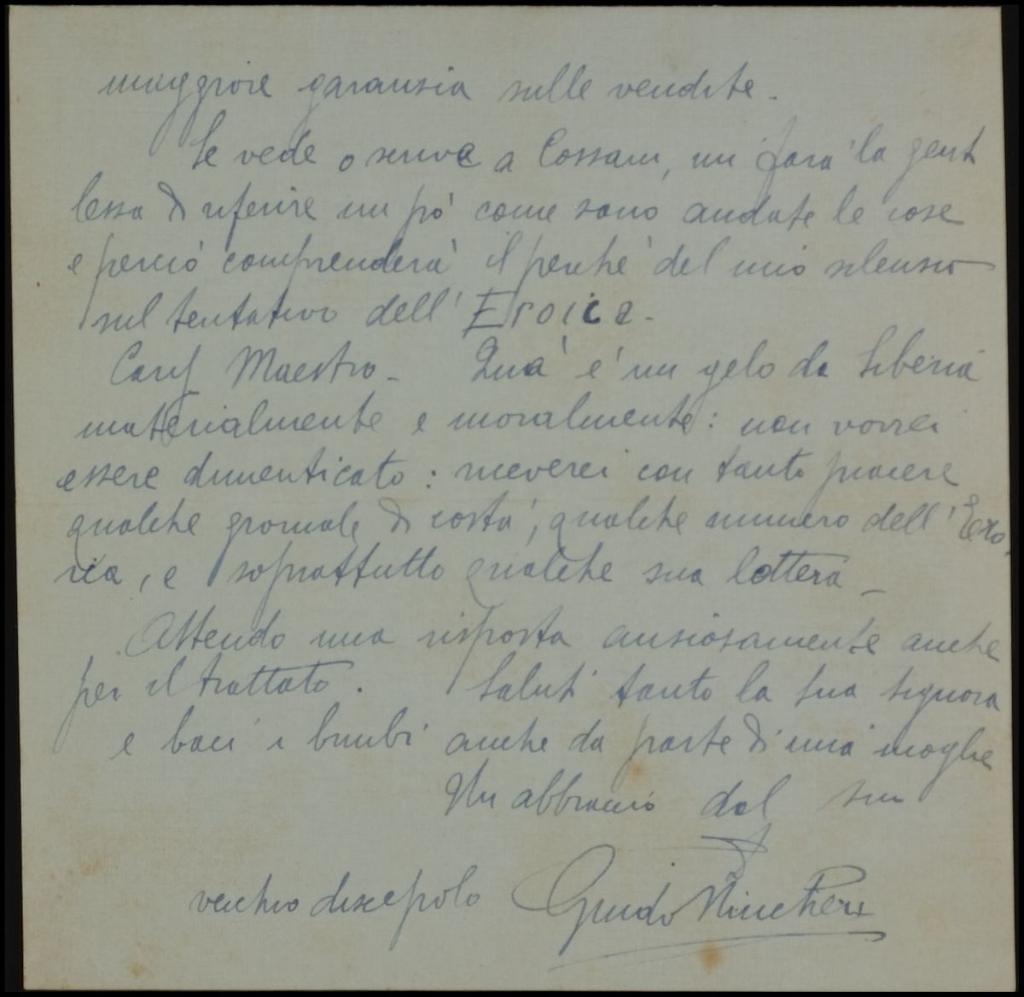 maggiore garanzia sulle vendite.
Se vede o scrive a Cossani, mi farà la genti
lezza di riferire un pò come sono andate le cose
e perciò comprenderà il perchè del mio silenzio
sul tentativo dell'Eroica.
Maestro. Quà è un gelo da Siberia
materialmente e moralmente: non vorrei
essere dimenticato: riceverei con tanto piacere
qualche giornale di costà, qualche numero dell'Ero
ica, e soprattutto qualche sua lettera
Attendo una risposta ansiosamente anche
per il trattato. Saluti tanto la sua signora
e baci i bimbi anche da parte di mia moglie
Un abbraccio dal suo
vecchio discepolo Guido Nincheri